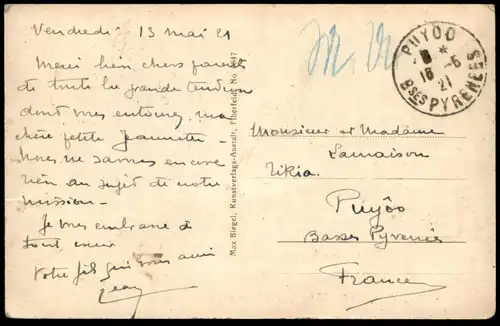 Vendredi 13 mai 21
Merci bien chers parents
de toute la grande tendresse
dont vous entourez ma
chère petite Jeannette -
Nous ne savons encore
rien au sujet de notre
mission -
Je vous embrasse de
tout cœur
Votre fils qui vous aime
Jean
Max Biegel, Kunstverlags-Anstalt, Elberfeld. No.
M. M
PUYOO
*
16 -5
21
Bses PYRENEES
Monsieur et Madame
Lamaison
Tikia
Puyôo
Basses Pyrénées
France